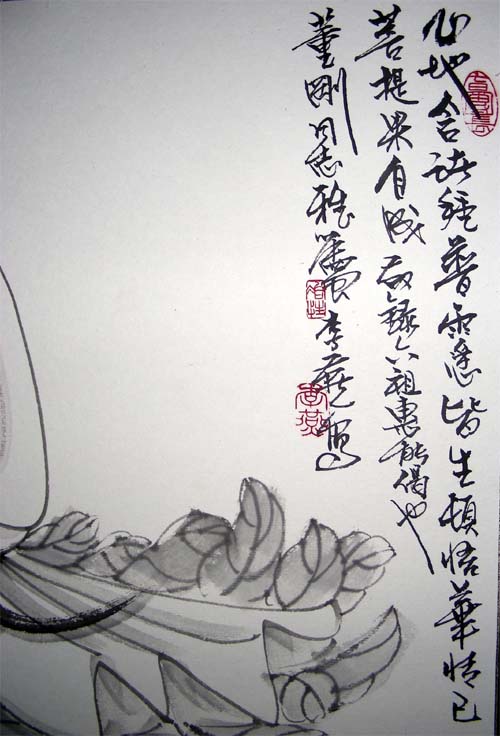 心地含諸種普雨悉皆生頓悟華情已
菩提果自成敬錄六祖惠能偈也
董剛同志雅屬李燕寫
李燕